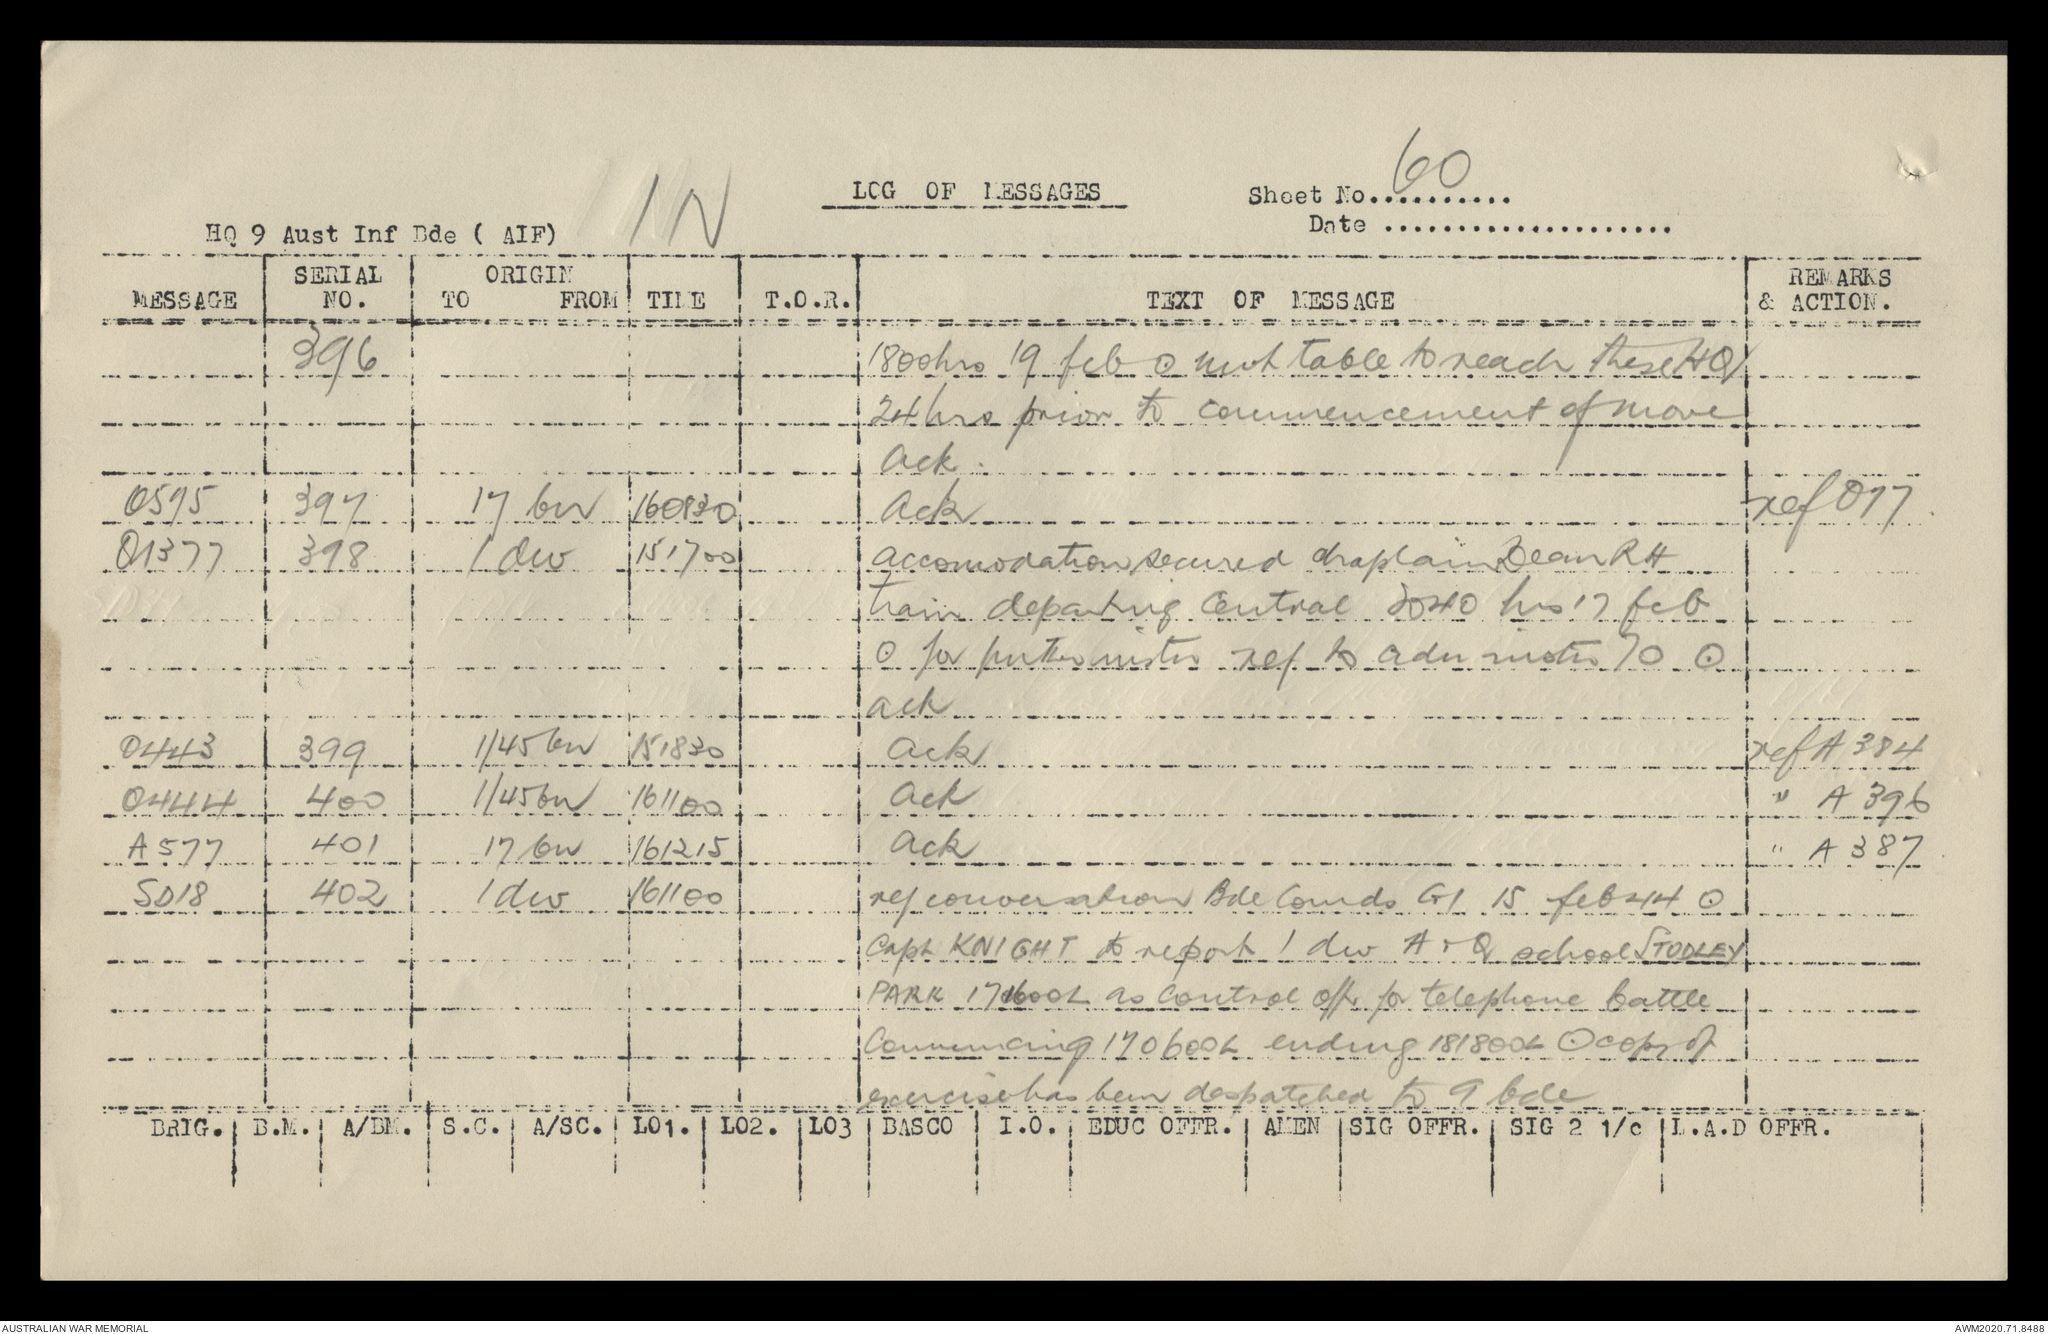 60
IN
LOG OF MESSAGES
Sheet No..........
Date ....................
HQ 9 Aust Inf Bde ( AIF)
MESSAGE SERIAL NO. ORIGIN TO FROM TIME T.O.R. TEXT OF MESSAGE REMARKS & ACTION.
396 1800hrs 19 feb ⊙ mvt table to reach these HQ
24 hrs prior to commencement of move
Ack.
0595 397 17 bn 160830 Ack ref 077
01377 398 1 div 151700 accomodation secured chaplain Dean RH
train departing Central 2040 hrs 17 feb
⊙ for further instrs ref to adm instr 70 ⊙
ack
0443 399 1/45 bn 151830 Ack ref A 384
0444 400 1/45 bn 161100 Ack " A 396
A577 401 17 bn 161215 Ack " A 387
SD18 402 1 div 161100 ref conversation Bde Comds G1 15 feb 44 ⊙
Capt KNIGHT to report 1 div A + Q school STUDLEY
PARK 171600L as control offr for telephone battle
Commencing 170600L ending 181800L ⊙ copy of
exercise has been despatched to 9 bde
BRIG. B.M. A/BM. S.C. A/SC. LO1. LO2. LO3 BASCO I.O. EDUC OFFR. AMEN SIG OFFR. SIG 2 1/c L.A.D OFFR.
AUSTRALIAN WAR MEMORIAL AWM2020.71.8488